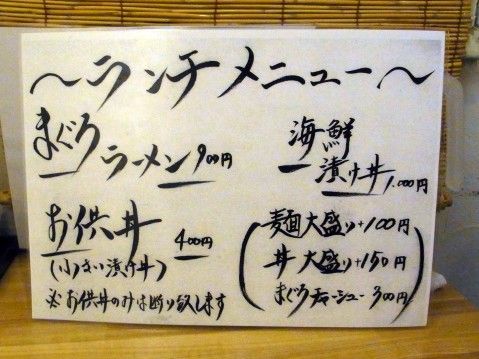 ～ランチメニュー～
まぐろ
ラーメン 900円
海鮮
漬け丼
1,000円
お供丼 400円
(小さい漬け丼)
※お供丼のみは断り致します
麺大盛り+100円
丼 大盛り+150円
まぐろチャーシュー 300円